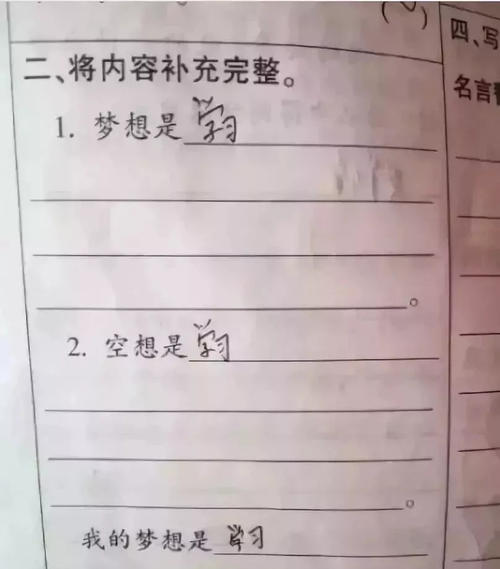 四、写
二、将内容补充完整。
名言
1. 梦想是学习
。
2. 空想是学习
。
我的梦想是学习